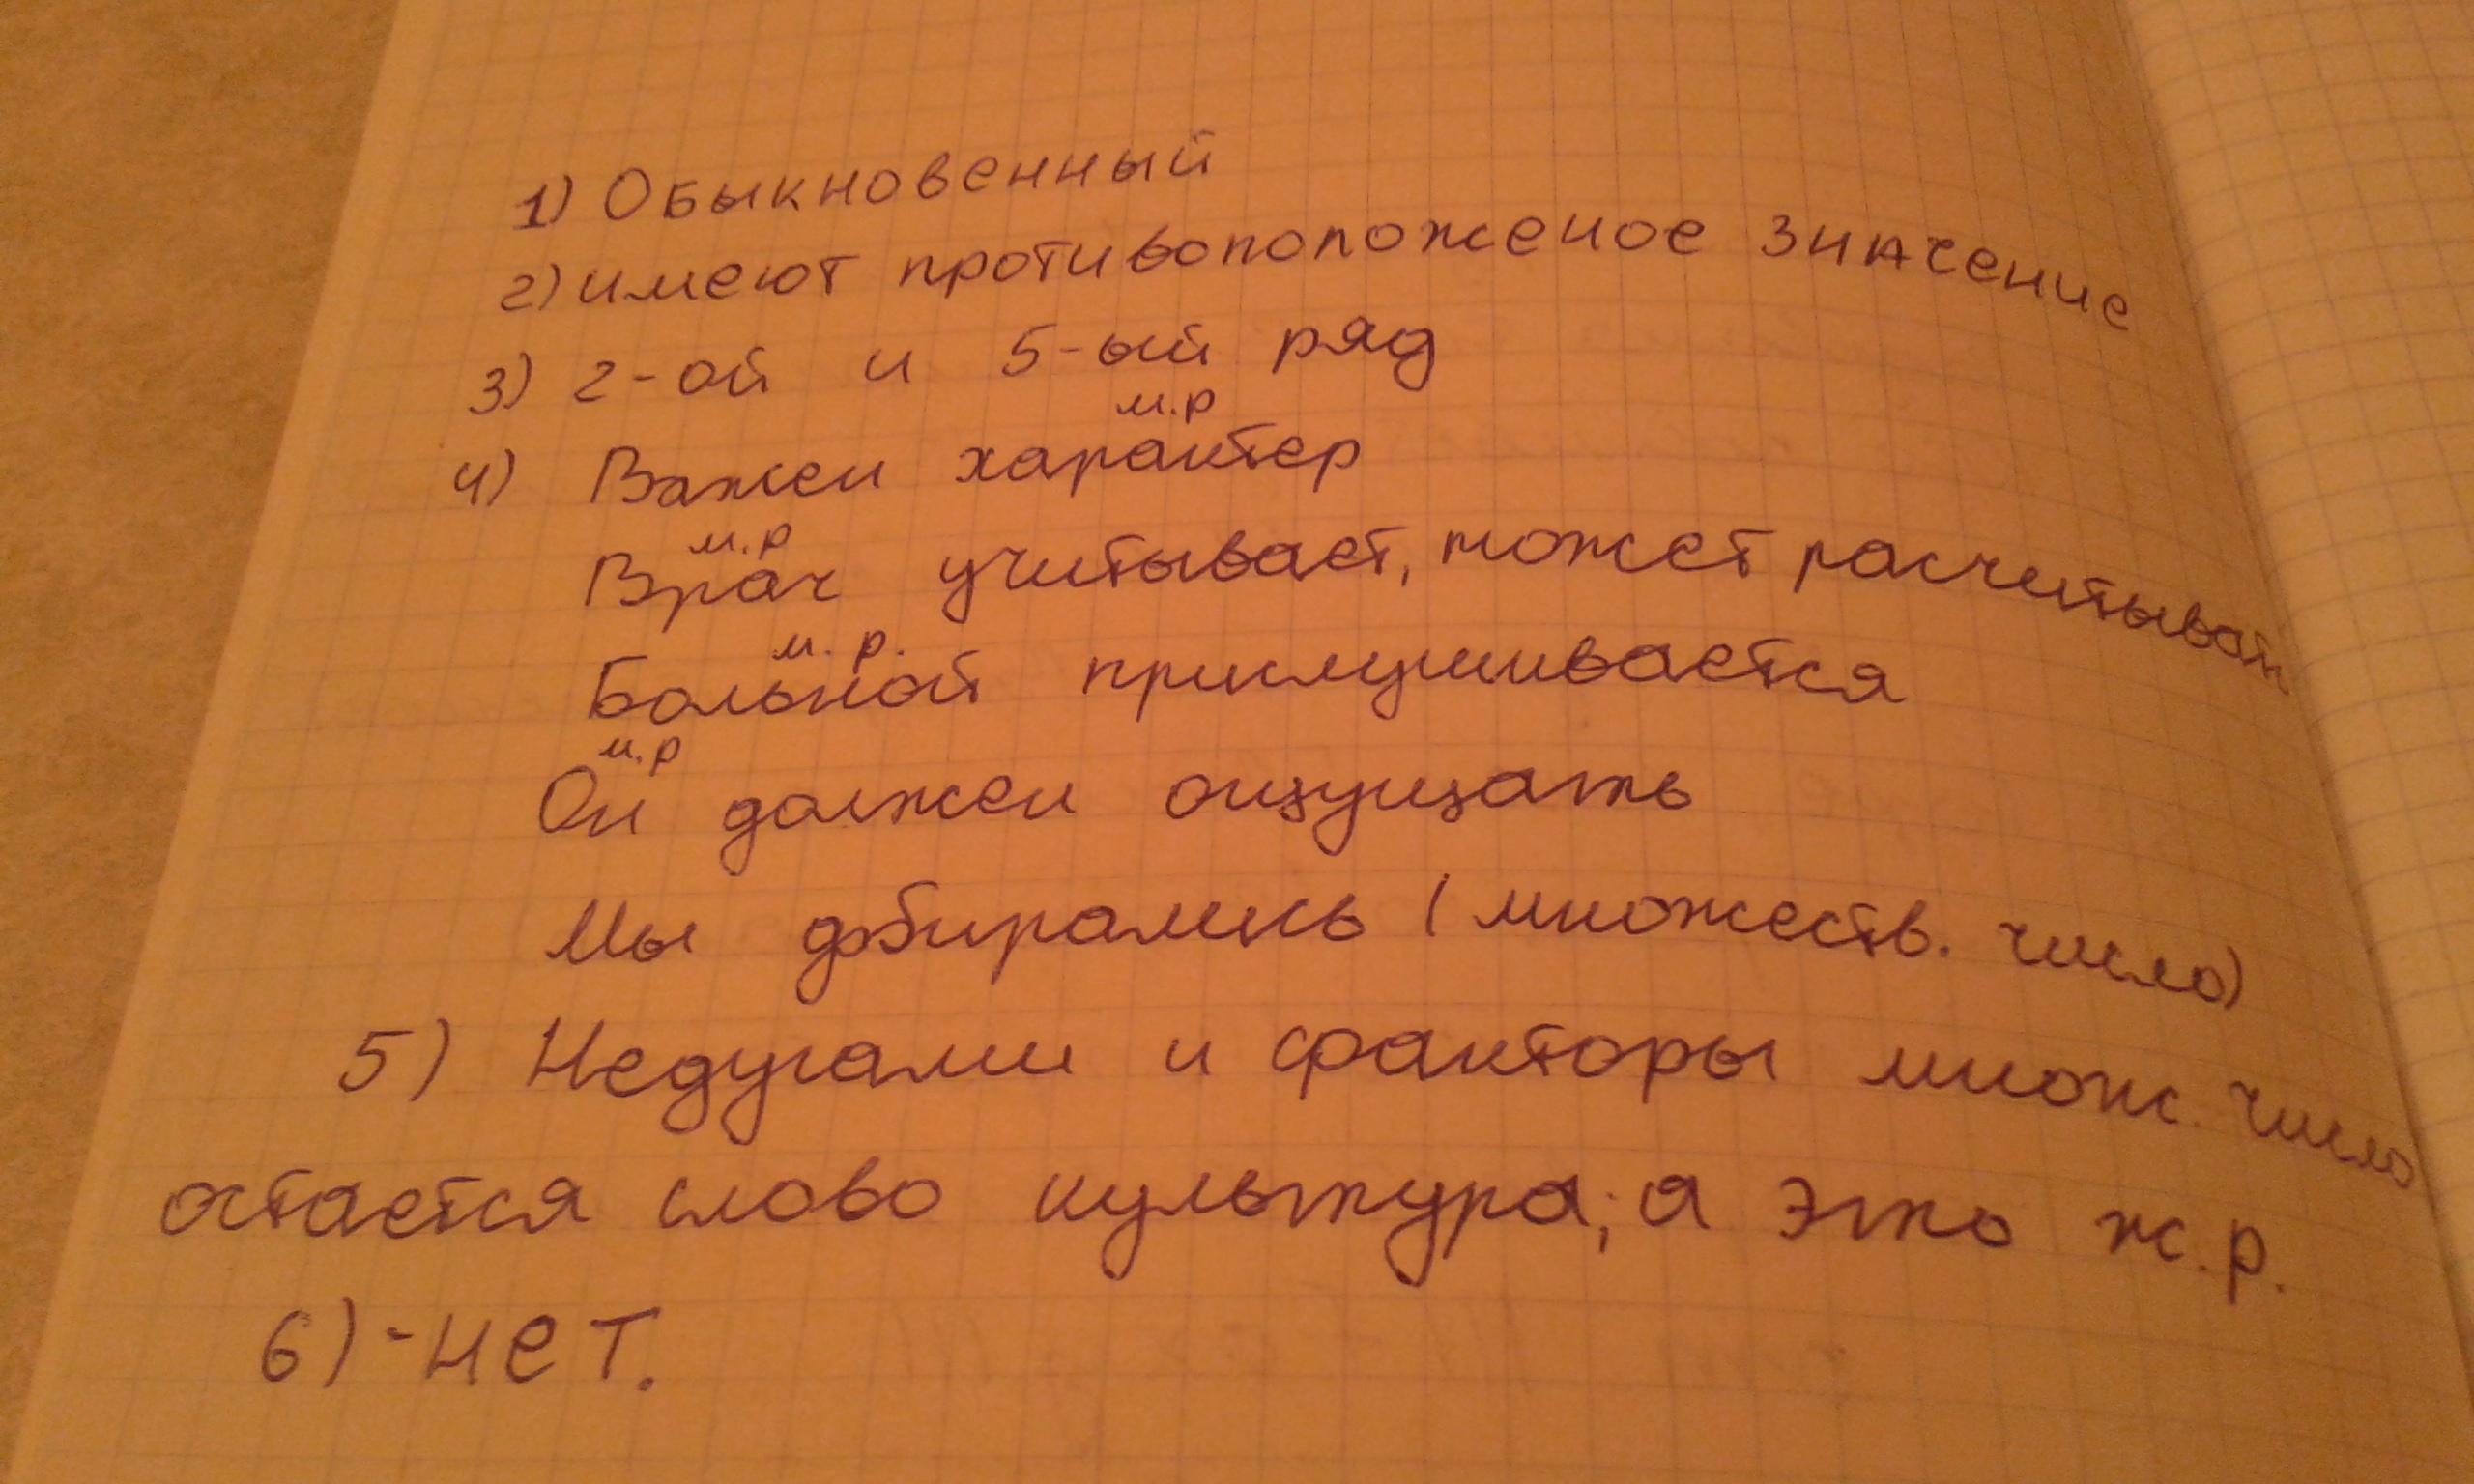 1) Обыкновенный
2) имеют противопоположеное значение
3) 2-ой и 5-ый ряд
м.р
4) Важен характер
м.р
Врач учитывает, может расчитывать
м. р.
Больной прислушивается
м.р
Он должен ощущать
Мы добирались (множеств. число)
5) Недугами и факторы множ. число
остается слово культура, а это ж.р.
6) - нет.